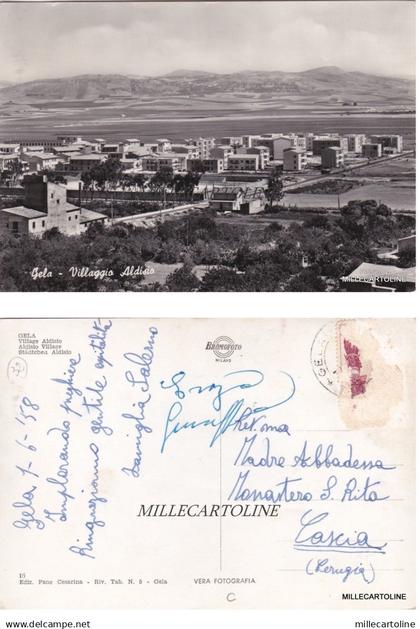 Gela - Villaggio Aldisio
MILLECARTOLINE
GELA
Village Aldisio
Aldisio Village
Städtchen Aldisio
BROMOFOTO
MILANO
Gela, 1-6-'58
Implorando preghiere
Ringraziamo gentile ospitalità
Famiglia Salerno
Rev.ma
Madre Abbadessa
Monastero S. Rita
Cascia
(Perugia)
MILLECARTOLINE
16
Ediz. Pane Cesarina - Riv. Tab. N. 5 - Gela
VERA FOTOGRAFIA
C
MILLECARTOLINE